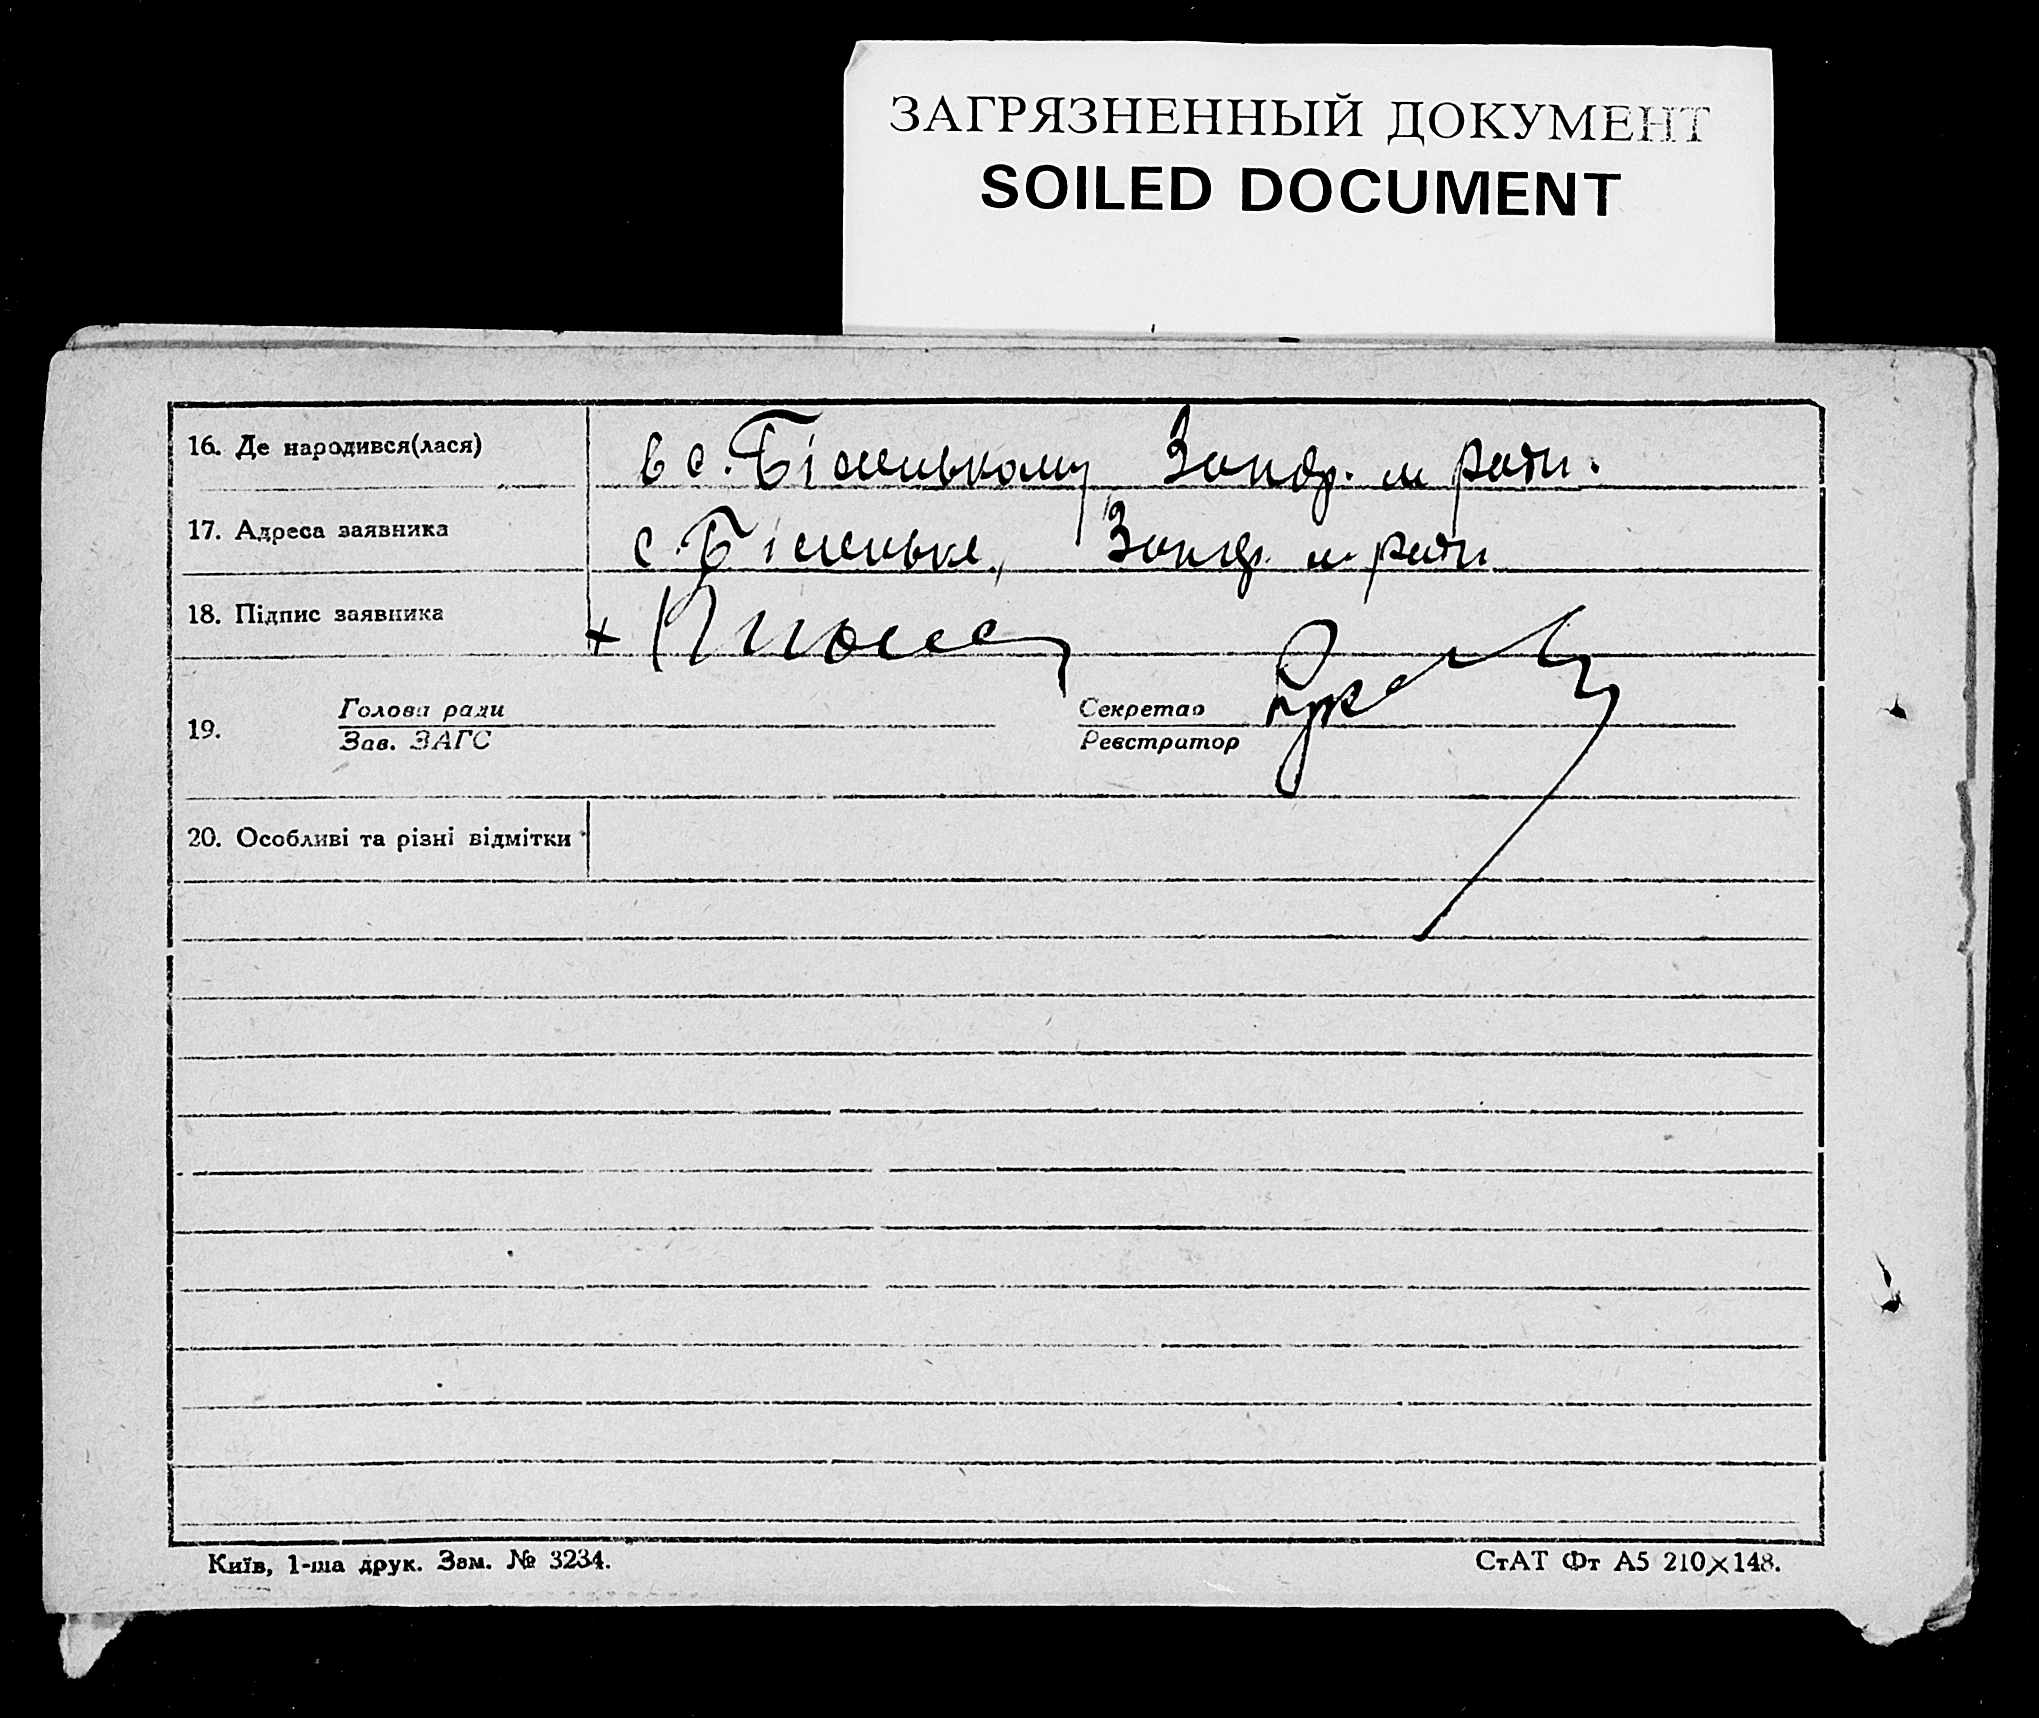 ЗАГРЯЗНЕННЫЙ ДОКУМЕНТ
SOILED DOCUMENT
16. Де народився(лася) в с. Біленькому Запор. м ради.
17. Адреса заявника с. Біленьке, Запор. м ради
18. Підпис заявника +
19. Голова ради Секретар
Зав. ЗАГС Реєстратор
20. Особливі та різні відмітки
Київ, 1-ша друк. Зам. № 3234. СтАТ Фт А5 210×148.